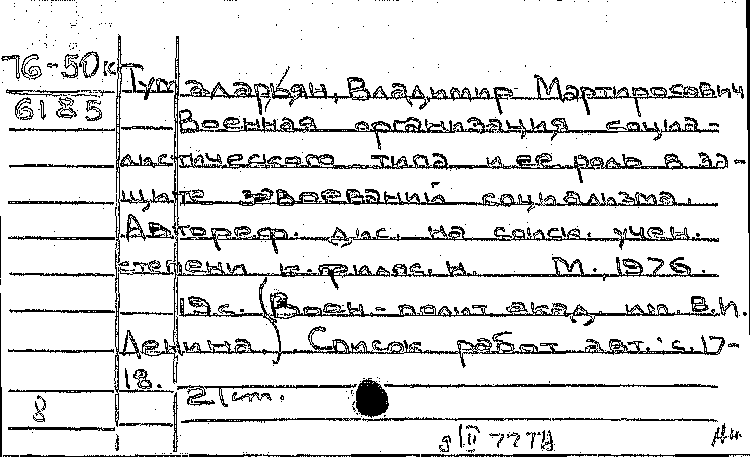 76-50к Тумаларьян, Владимир Мартиросович
6185
Военная организация социа-
листического типа и ее роль в за-
щите завоеваний социализма.
Автореф. дис. на соиск. учен.
степени к. филос. н. М., 1976.
19 с. (Воен-полит. акад. им. В.И.
Ленина). Список работ авт.: с. 17-
18.
8 21 cm.